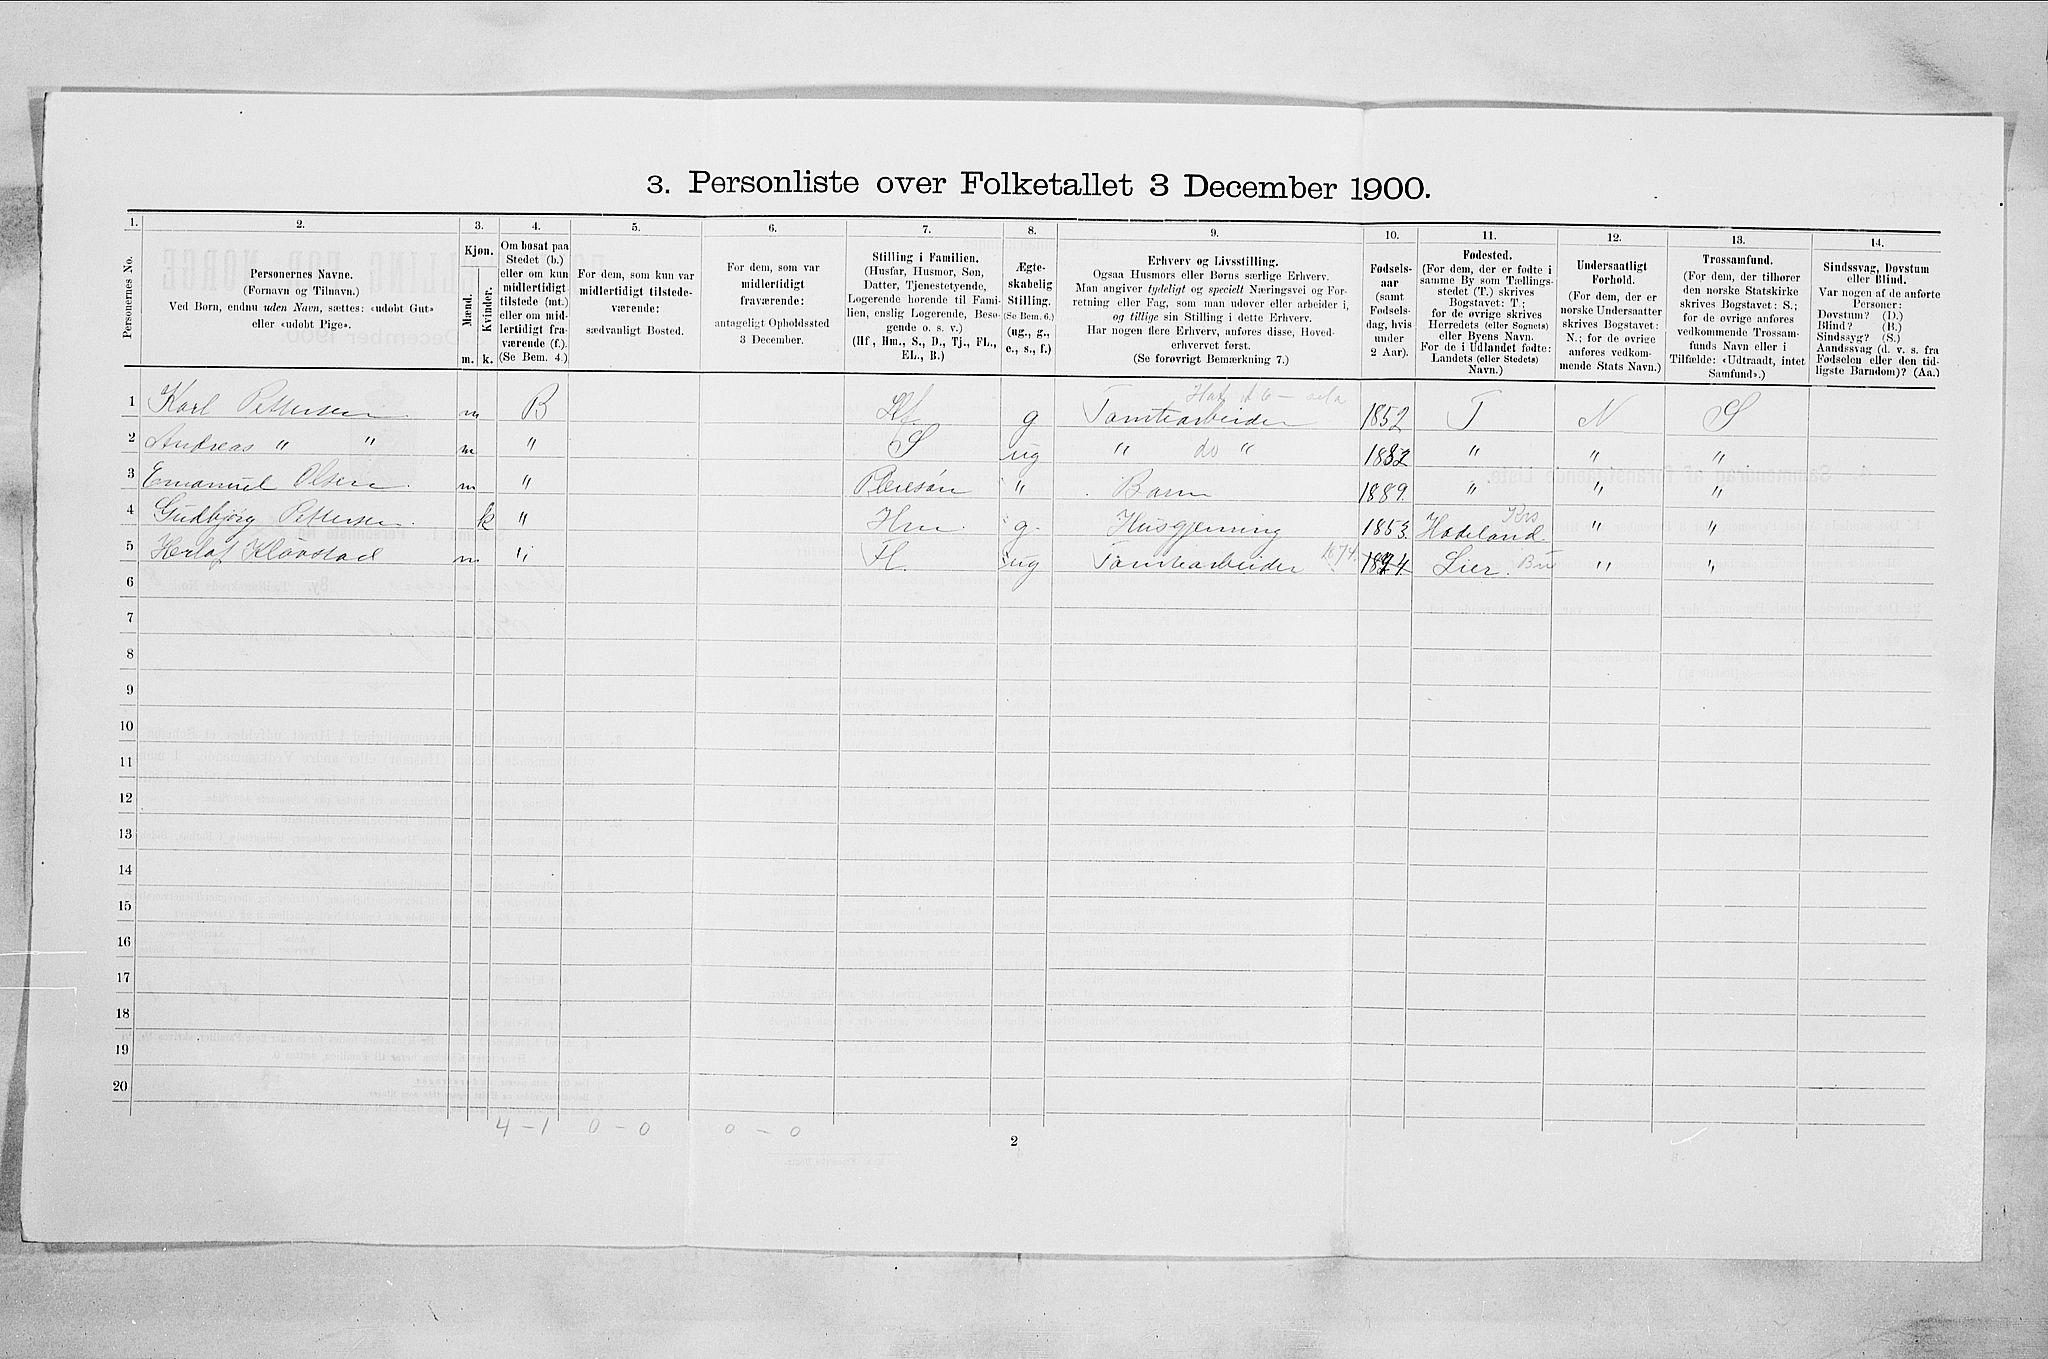 3. Personliste over Folketallet 3 December 1900.
1. 2. 3. 4. 5. 6. 7. 8. 9. 10. 11. 12. 13. 14.
Personernes No.
Personernes Navne.
(Fornavn og Tilnavn.)
Ved Børn, endnu uden Navn, sættes: «udøbt Gut»
eller «udøbt Pige».
Kjøn.
Mænd.
Kvinder.
m. k.
Om bosat paa
Stedet (b.)
eller om kun
midlertidigt
tilstede (mt.)
eller om mid-
lertidigt fra-
værende (f.).
(Se Bem. 4.)
For dem, som kun var
midlertidigt tilstede-
værende:
sædvanligt Bosted.
For dem, som var
midlertidigt
fraværende:
antageligt Opholdssted
3 December.
Stilling i Familien.
(Husfar, Husmor, Søn,
Datter, Tjenestetyende,
Logerende hørende til Fami-
lien, enslig Logerende, Besø-
gende o. s. v.)
(Hf., Hm., S., D., Tj., FL.,
EL., B.)
Ægte-
skabelig
Stilling.
(Se Bem. 6.)
(ug., g.,
e., s., f.)
Erhverv og Livsstilling.
Ogsaa Husmors eller Børns særlige Erhverv.
Man angiver tydeligt og specielt Næringsvei og For-
retning eller Fag, som man udøver eller arbeider i,
og tillige sin Stilling i dette Erhverv.
Har nogen flere Erhverv, anføres disse, Hoved-
erhvervet først.
(Se forøvrigt Bemærkning 7.)
Fødsels-
aar
(samt
Fødsels-
dag, hvis
under
2 Aar).
Fødested.
(For dem, der er fødte i
samme By som Tællings-
stedet (T.) skrives
Bogstavet: T;
for de øvrige skrives
Herredets (eller Sognets)
eller Byens Navn.
For de i Udlandet fødte:
Landets (eller Stedets)
Navn.)
Undersaatligt
Forhold.
(For dem, der er
norske Undersaatter
skrives Bogstavet:
N.; for de øvrige
anføres vedkom-
mende Stats Navn.)
Trossamfund.
(For dem, der tilhører
den norske Statskirke
skrives Bogstavet: S.;
for de øvrige anføres
vedkommende Trossam-
funds Navn eller i
Tilfælde: «Udtraadt, intet
Samfund».)
Sindssvag, Døvstum
eller Blind.
Var nogen af de anførte
Personer:
Døvstum? (D.)
Blind? (B.)
Sindssyg? (S.)
Aandssvag (d. v. s. fra
Fødselen eller den tid-
ligste Barndom)? (Aa.)
1 Karl Pettersen m B Hf. g Tomtearbeider 1852 T N S
2 Andreas " " m " S ug " do " 1882 " " "
3 Emanuel Olsen. m " Pleiesøn " Barn 1889. " " "
4 Gudbjørg Pettersen. k " Hm. g. Husgjerning 1853. Hadeland. Krs " "
5 Herlof Kløvstad m " FL. ug Tomtearbeider 1874. Lier. Bu " "
6
7
8
9
10
11
12
13
14
15
16
17
18
19
20
4 – 1 0 – 0 0 – 0
2